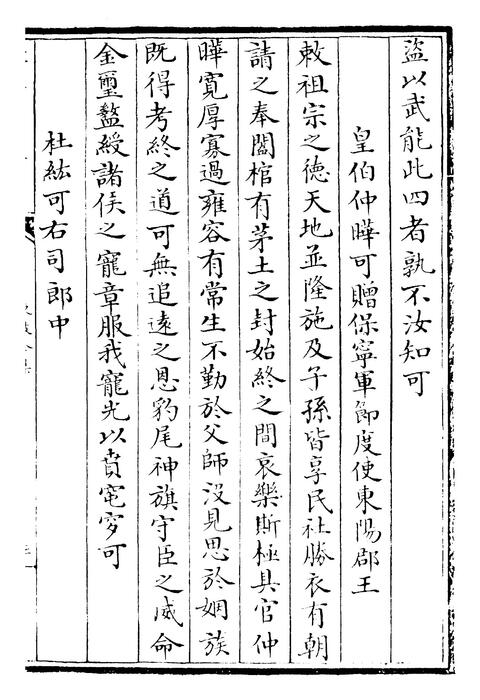 盜以武能此四者孰不汝知可
皇伯仲曄可贈保寧軍節度使東陽郡王
敕祖宗之德天地並隆施及子孫皆享民社勝衣有朝
請之奉闔棺有茅土之封始終之間哀樂斯極具官仲
曄寬厚寡過雍容有常生不勤於父師沒見思於姻族
既得考終之道可無追遠之恩豹尾神旗守臣之威命
金璽盭綬諸侯之寵章服我寵光以賁窀穸可
杜紘可右司郎中